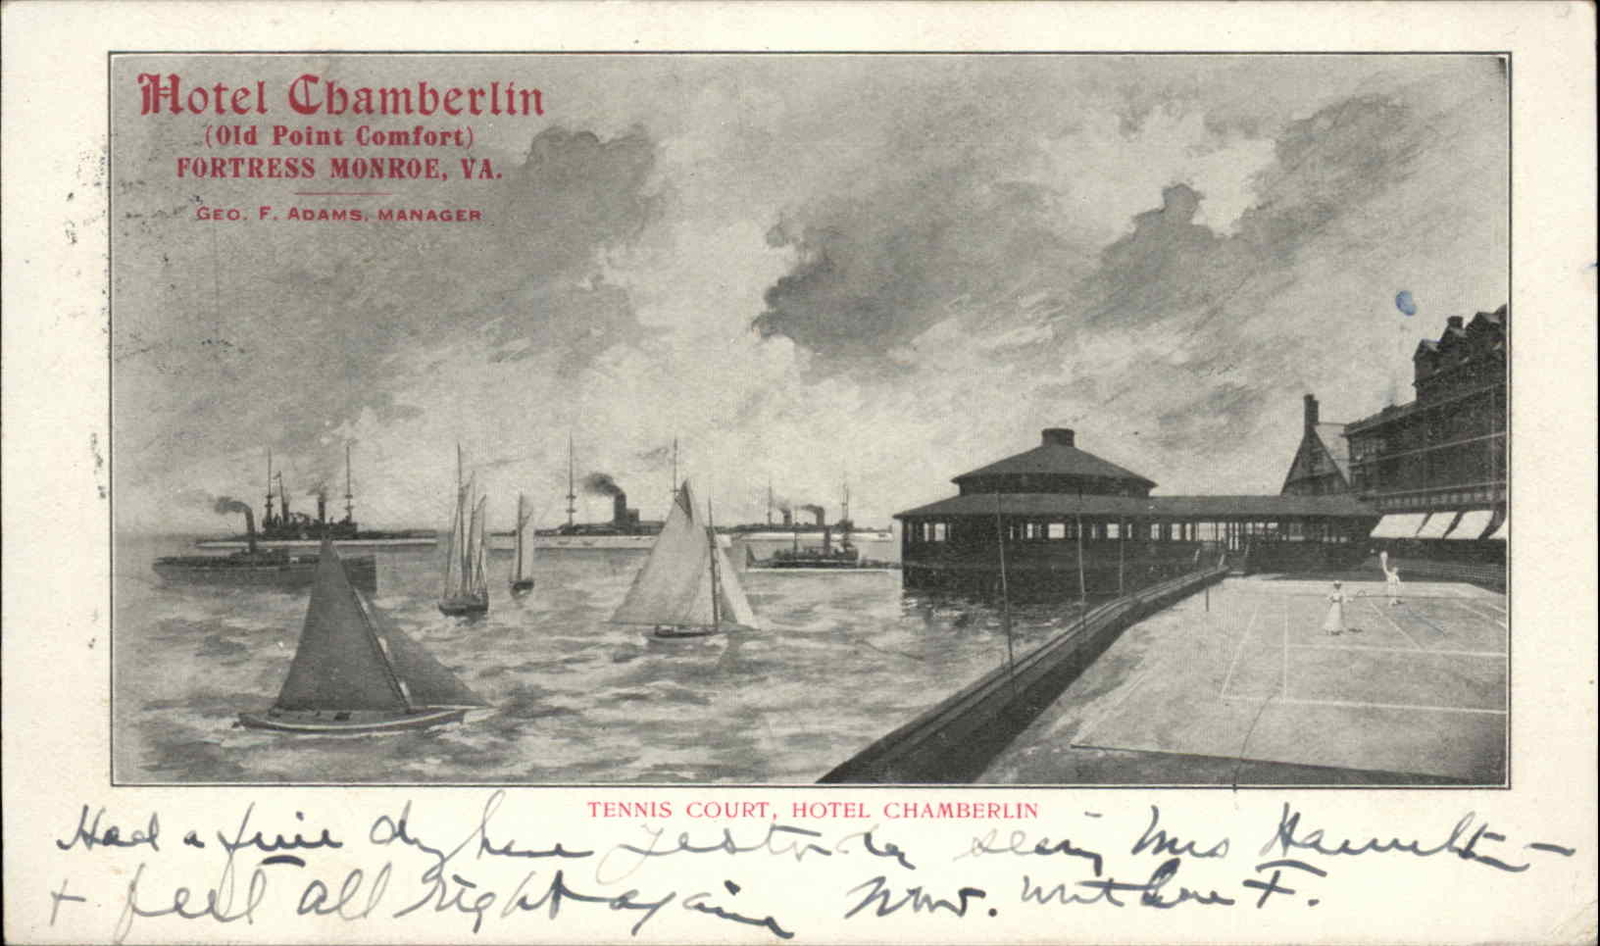 Hotel Chamberlin
(Old Point Comfort)
FORTRESS MONROE, VA.
GEO. F. ADAMS, MANAGER
TENNIS COURT, HOTEL CHAMBERLIN
Had a fine day here yesterday seeing Mrs Hamilton
+ feel all right again now. with love F.